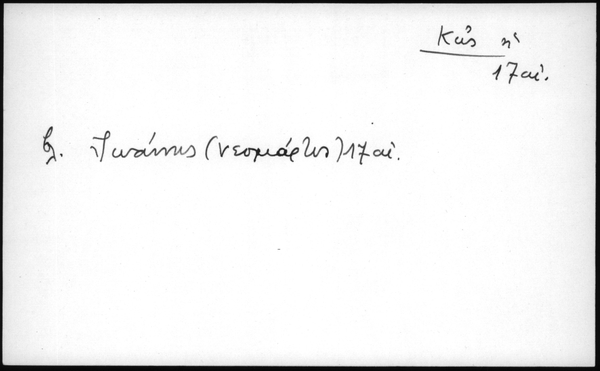 Κώς ν'
17 αἰ.
βλ. Ἰωάννης (νεομάρτυς) 17 αἰ.